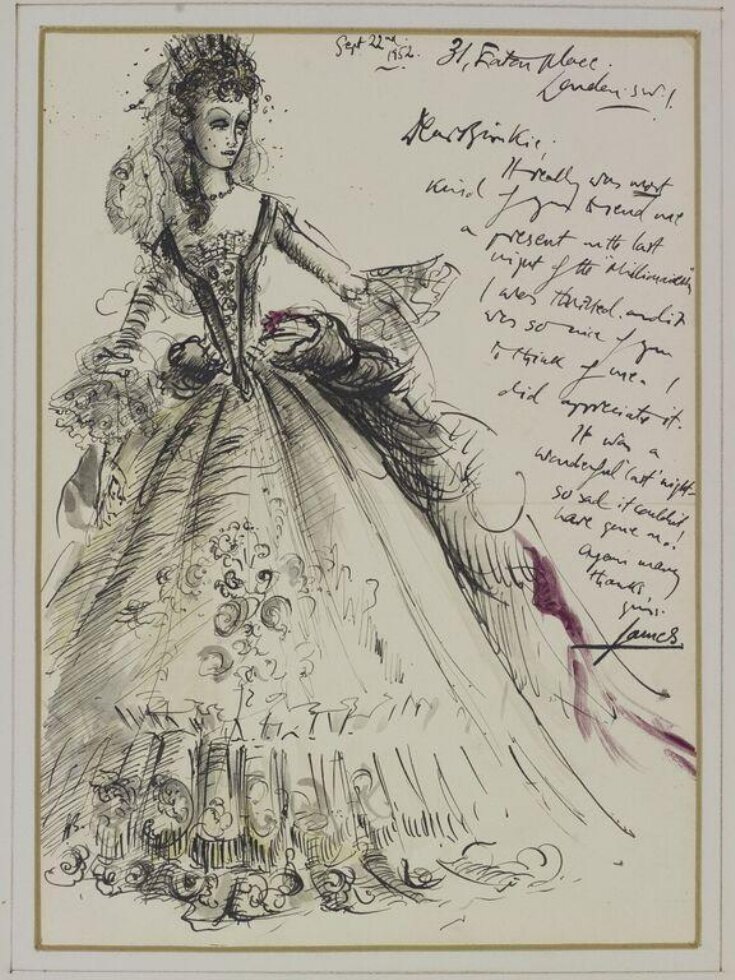 Sept 22nd. 1952.
31, Eaton Place.
London. S.W.1.
Dear Binkie,
It really was most
kind of you to send me
a present on the last
night of the "Millionairess"
I was thrilled. and it
was so nice of you
to think of me. I
did appreciate it.
It was a
wonderful 'last' night -
so sad it couldn't
have gone on!
Again many
thanks,
yours.
James.